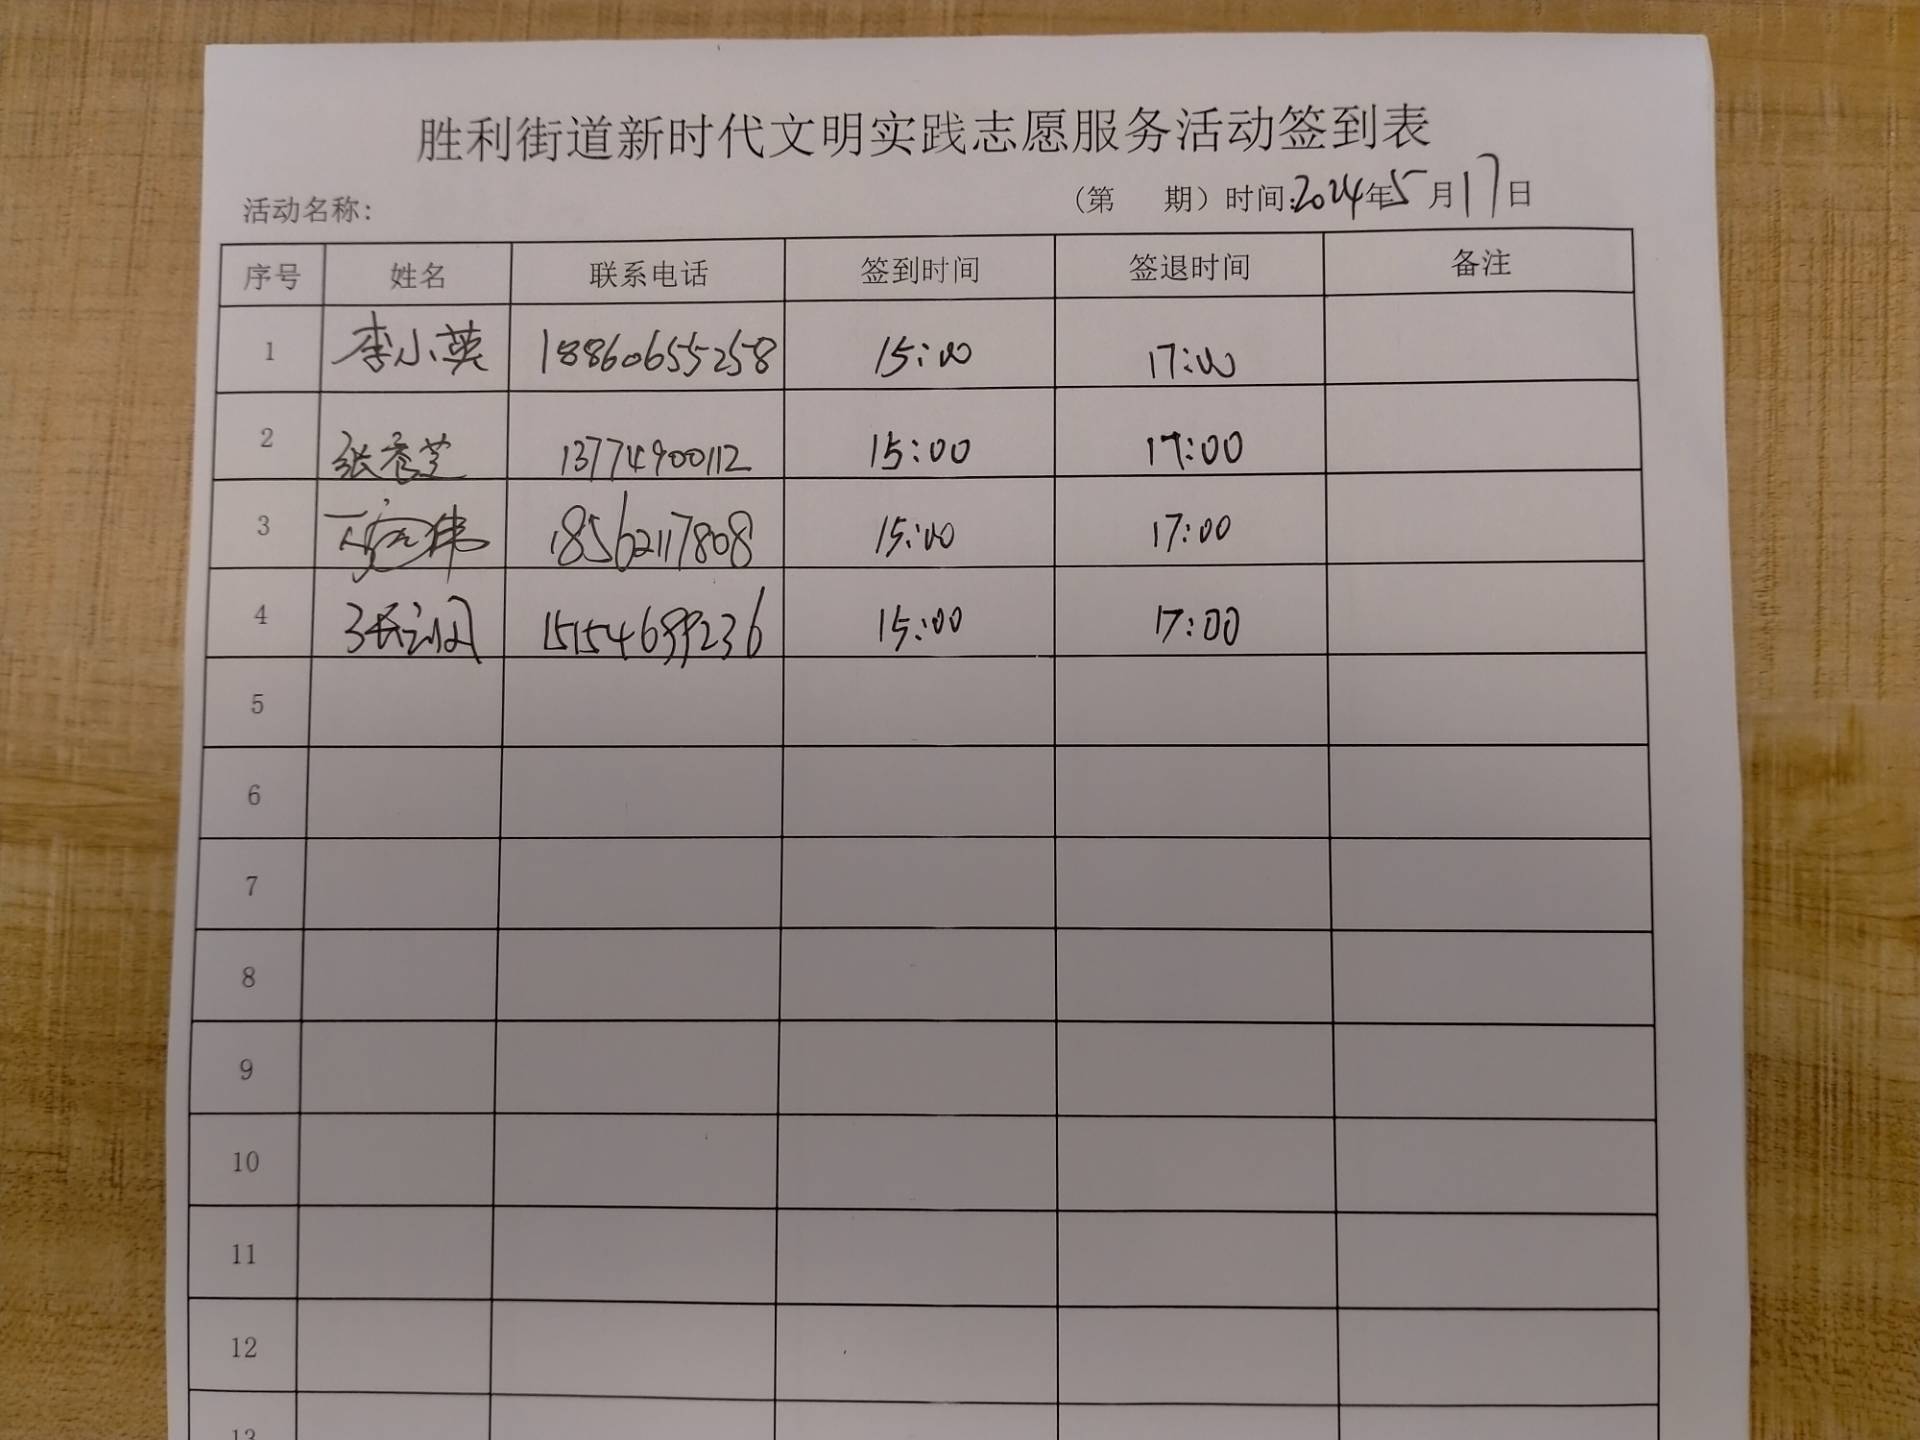 胜利街道新时代文明实践志愿服务活动签到表
活动名称: （第 期）时间:2024年5月17日
序号 姓名 联系电话 签到时间 签退时间 备注
1 李小英 18860655258 15:00 17:00
2 张秀芝 13774900112 15:00 17:00
3 18562117808 15:00 17:00
4 15154699236 15:00 17:00
5
6
7
8
9
10
11
12
13